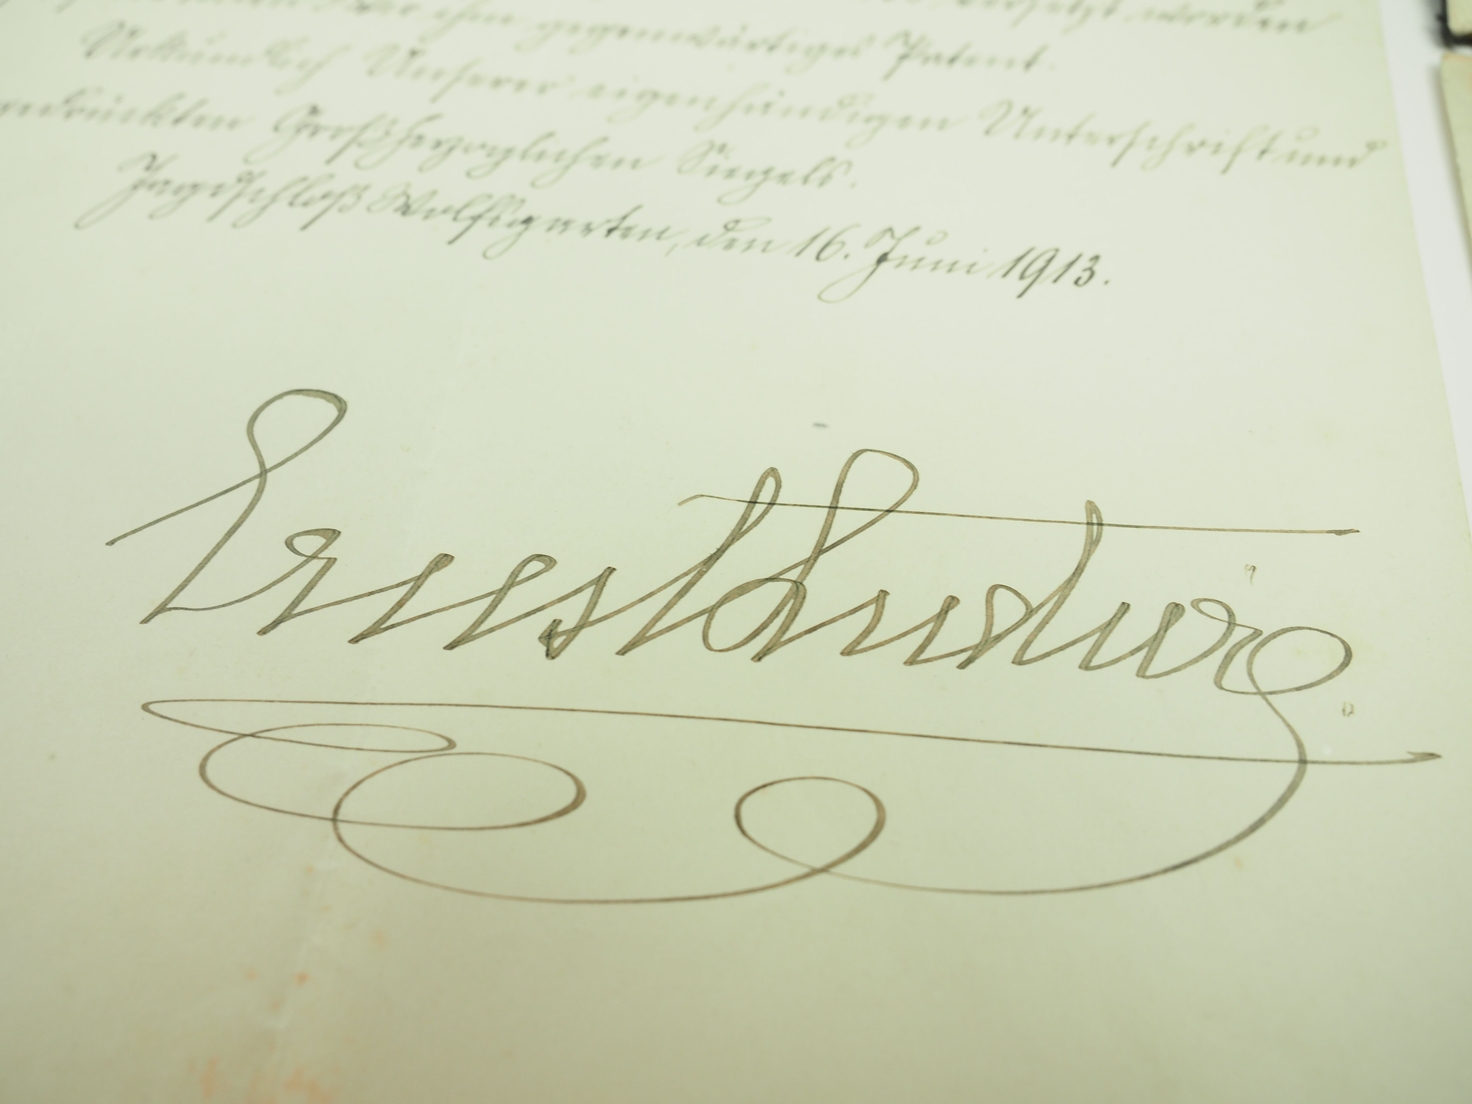 ihm gegenwärtiges Patent.
Urkundlich Unserer eigenhändigen Unterschrift und
gedrückten Großherzoglichen Siegels.
Jagdschloß Wolfsgarten, den 16. Juni 1913.
Ernst Ludwig